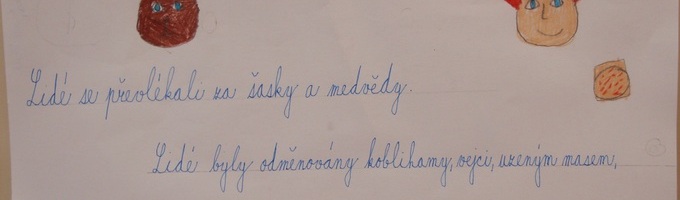 Lidé se převlékali za šasky a medvědy.
Lidé byly odměnovány koblihamy, vejci, uzeným masem,